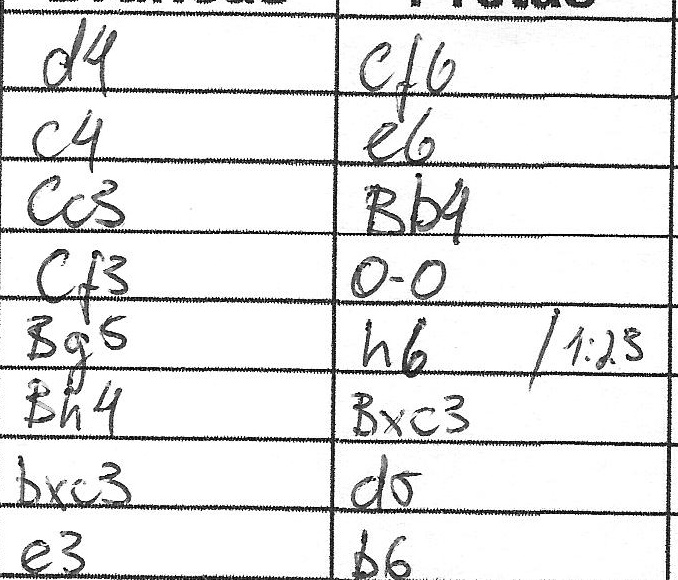 d4 Cf6
c4 e6
Cc3 Bb4
Cf3 0-0
Bg5 h6 / 1:23
Bh4 Bxc3
bxc3 d5
e3 b6